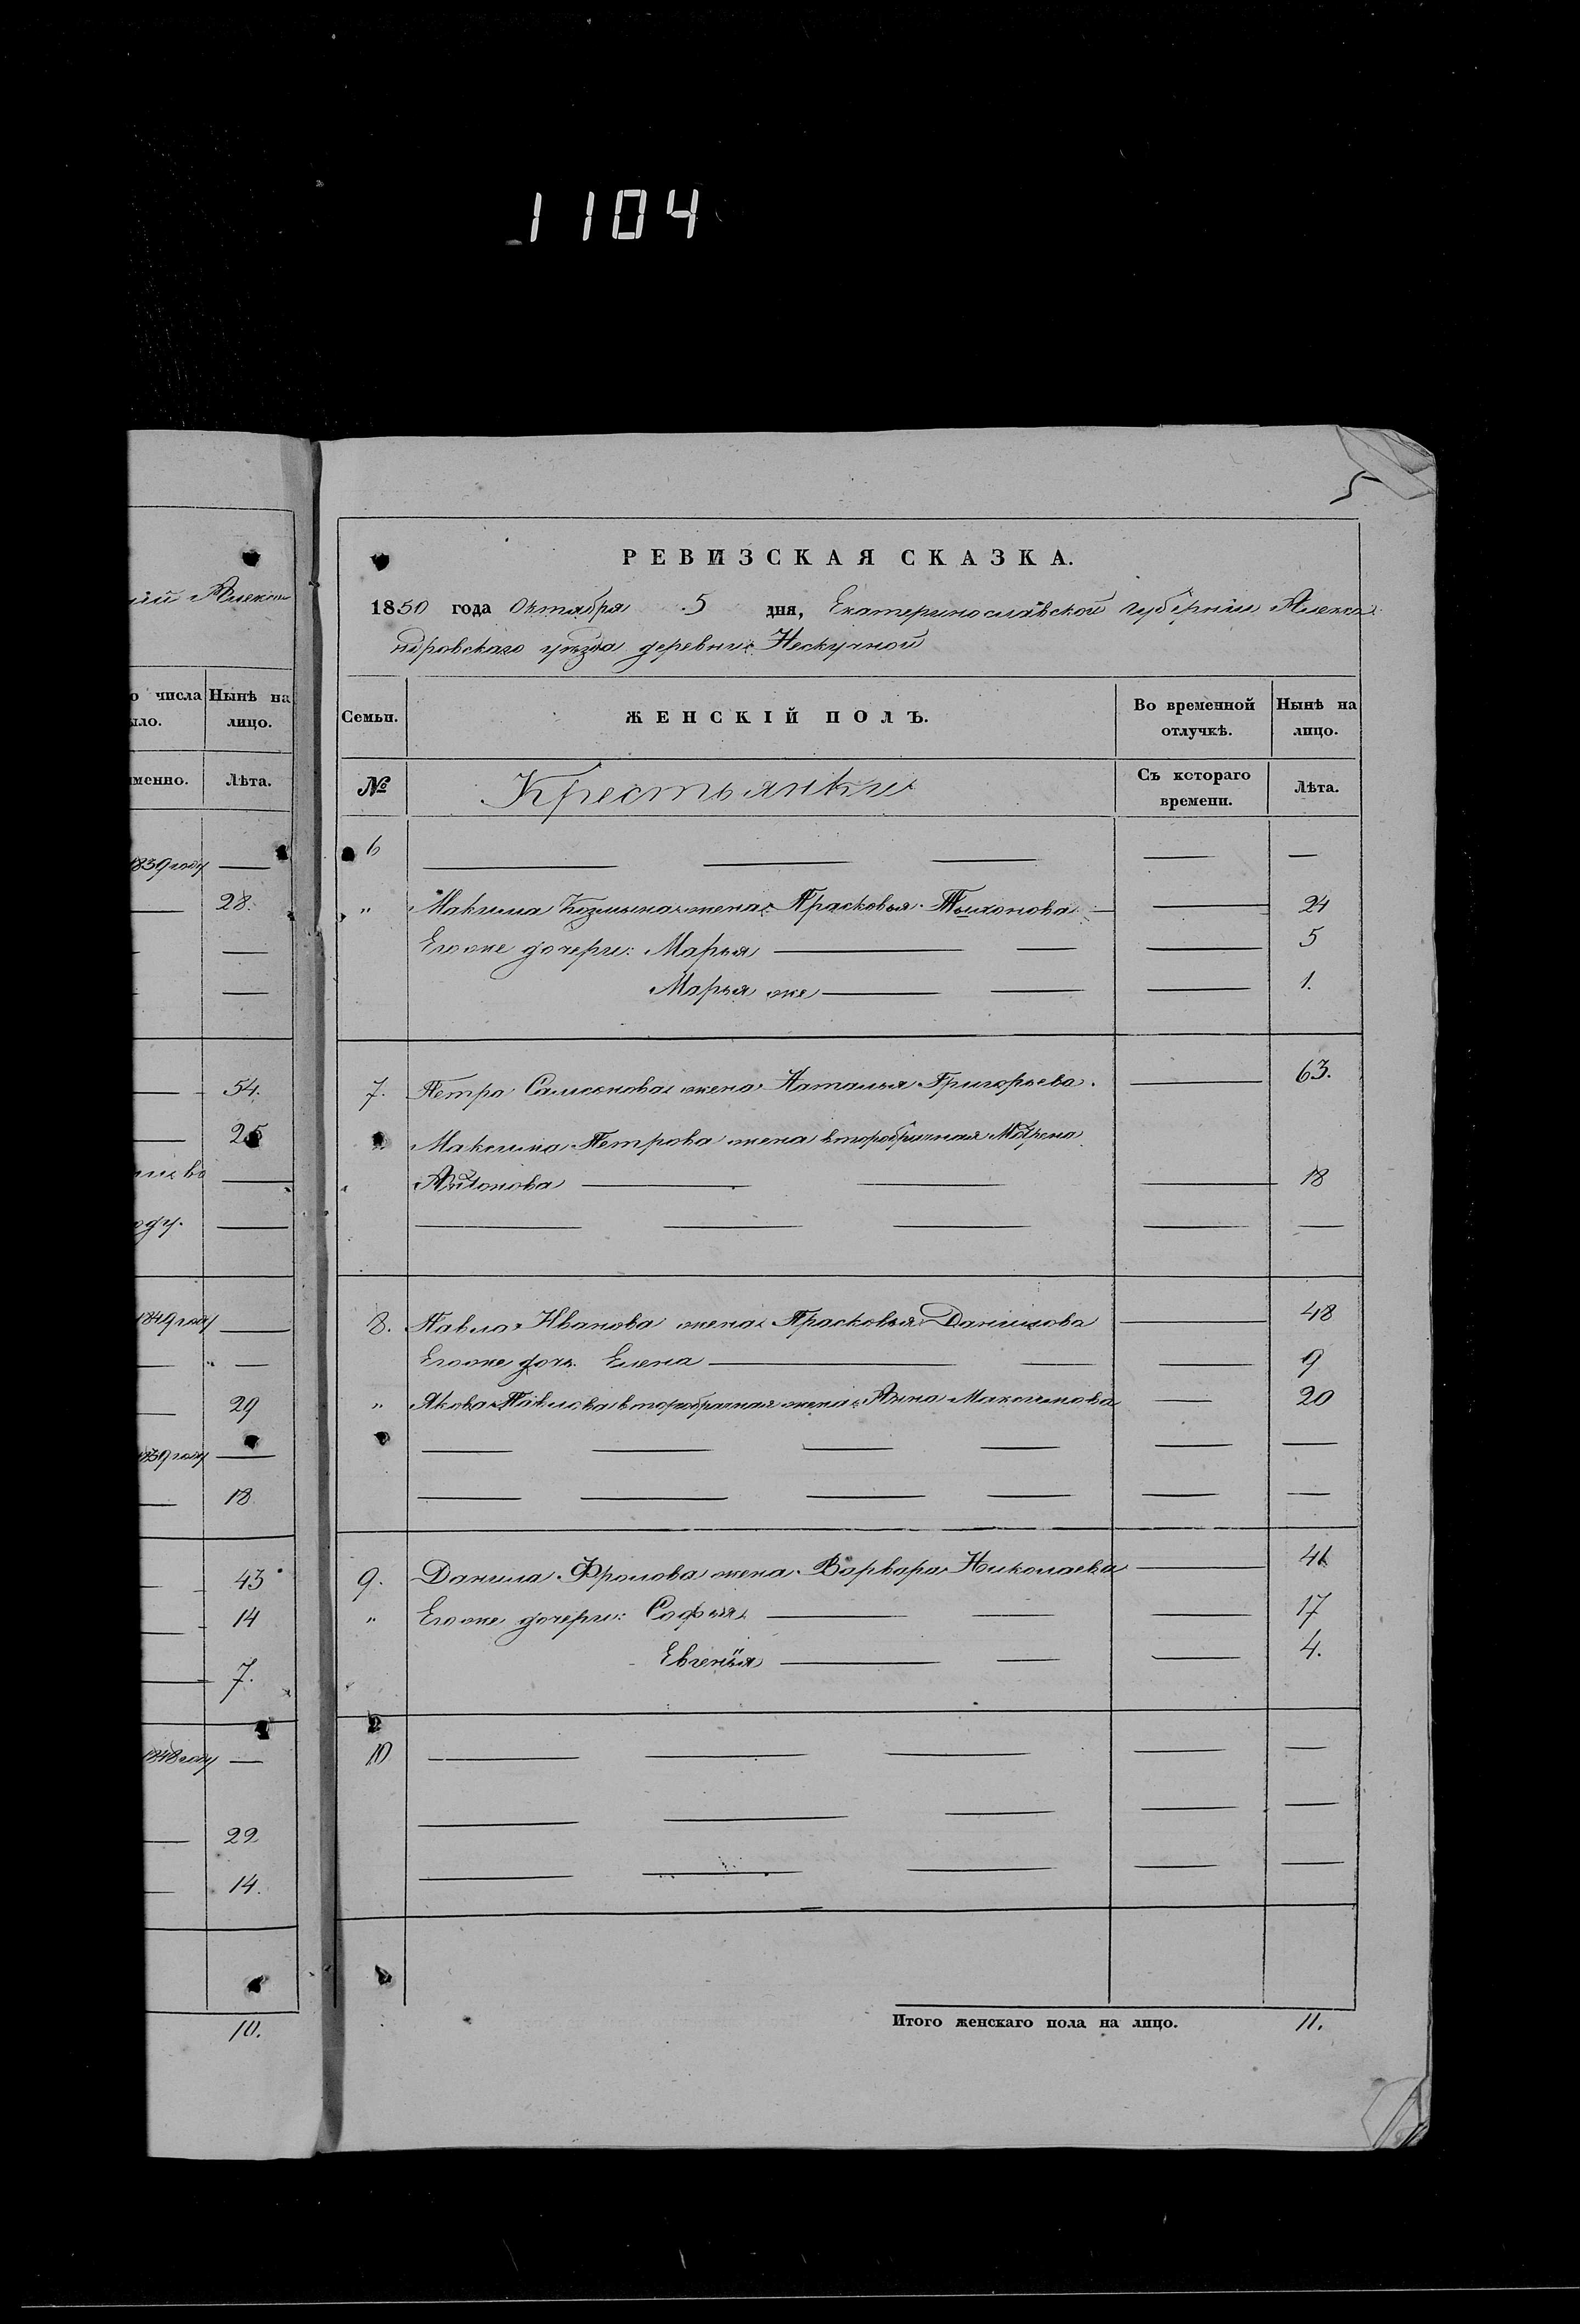 1104
5
ій Алекса
о числа Нынѣ на
ыло. лицо.
именно. Лѣта.
1839 году —
28.
54.
25
оду.
1849 году —
29
1839 году —
18
43
14
7.
1848 году —
22
14.
10.
РЕВИЗСКАЯ СКАЗКА.
1850 года Октября 5 дня, Екатеринославской губерніи Алекса
ндровскаго уѣзда деревни Нескучной
Семьи. ЖЕНСКІЙ ПОЛЪ. Во временной отлучкѣ. Нынѣ на лицо.
№ Крестьянки Съ котораго времени. Лѣта.
6 — — — — —
" Максима Козмина жена Прасковья Тихонова — — 24
Его же дочери: Марья — — — 5
Марья же — — — 1.
7. Петра Самсонова жена Наталья Григорьева. — 63.
Максима Петрова жена второбрачная Матрена
Антонова — — — 18
— — — — —
8. Павла Иванова жена Прасковья Данилова — 48
Его же дочь Елена — — — 9
" Якова Павлова второбрачная жена Анна Максимова — 20
— — — — — —
— — — — — —
9. Данила Фролова жена Варвара Николаева — 41
" Его же дочери: Софья — — — 17
Евгенія — — — 4.
10 — — — — —
— — — — —
— — — — —
Итого женскаго пола на лицо. 11.